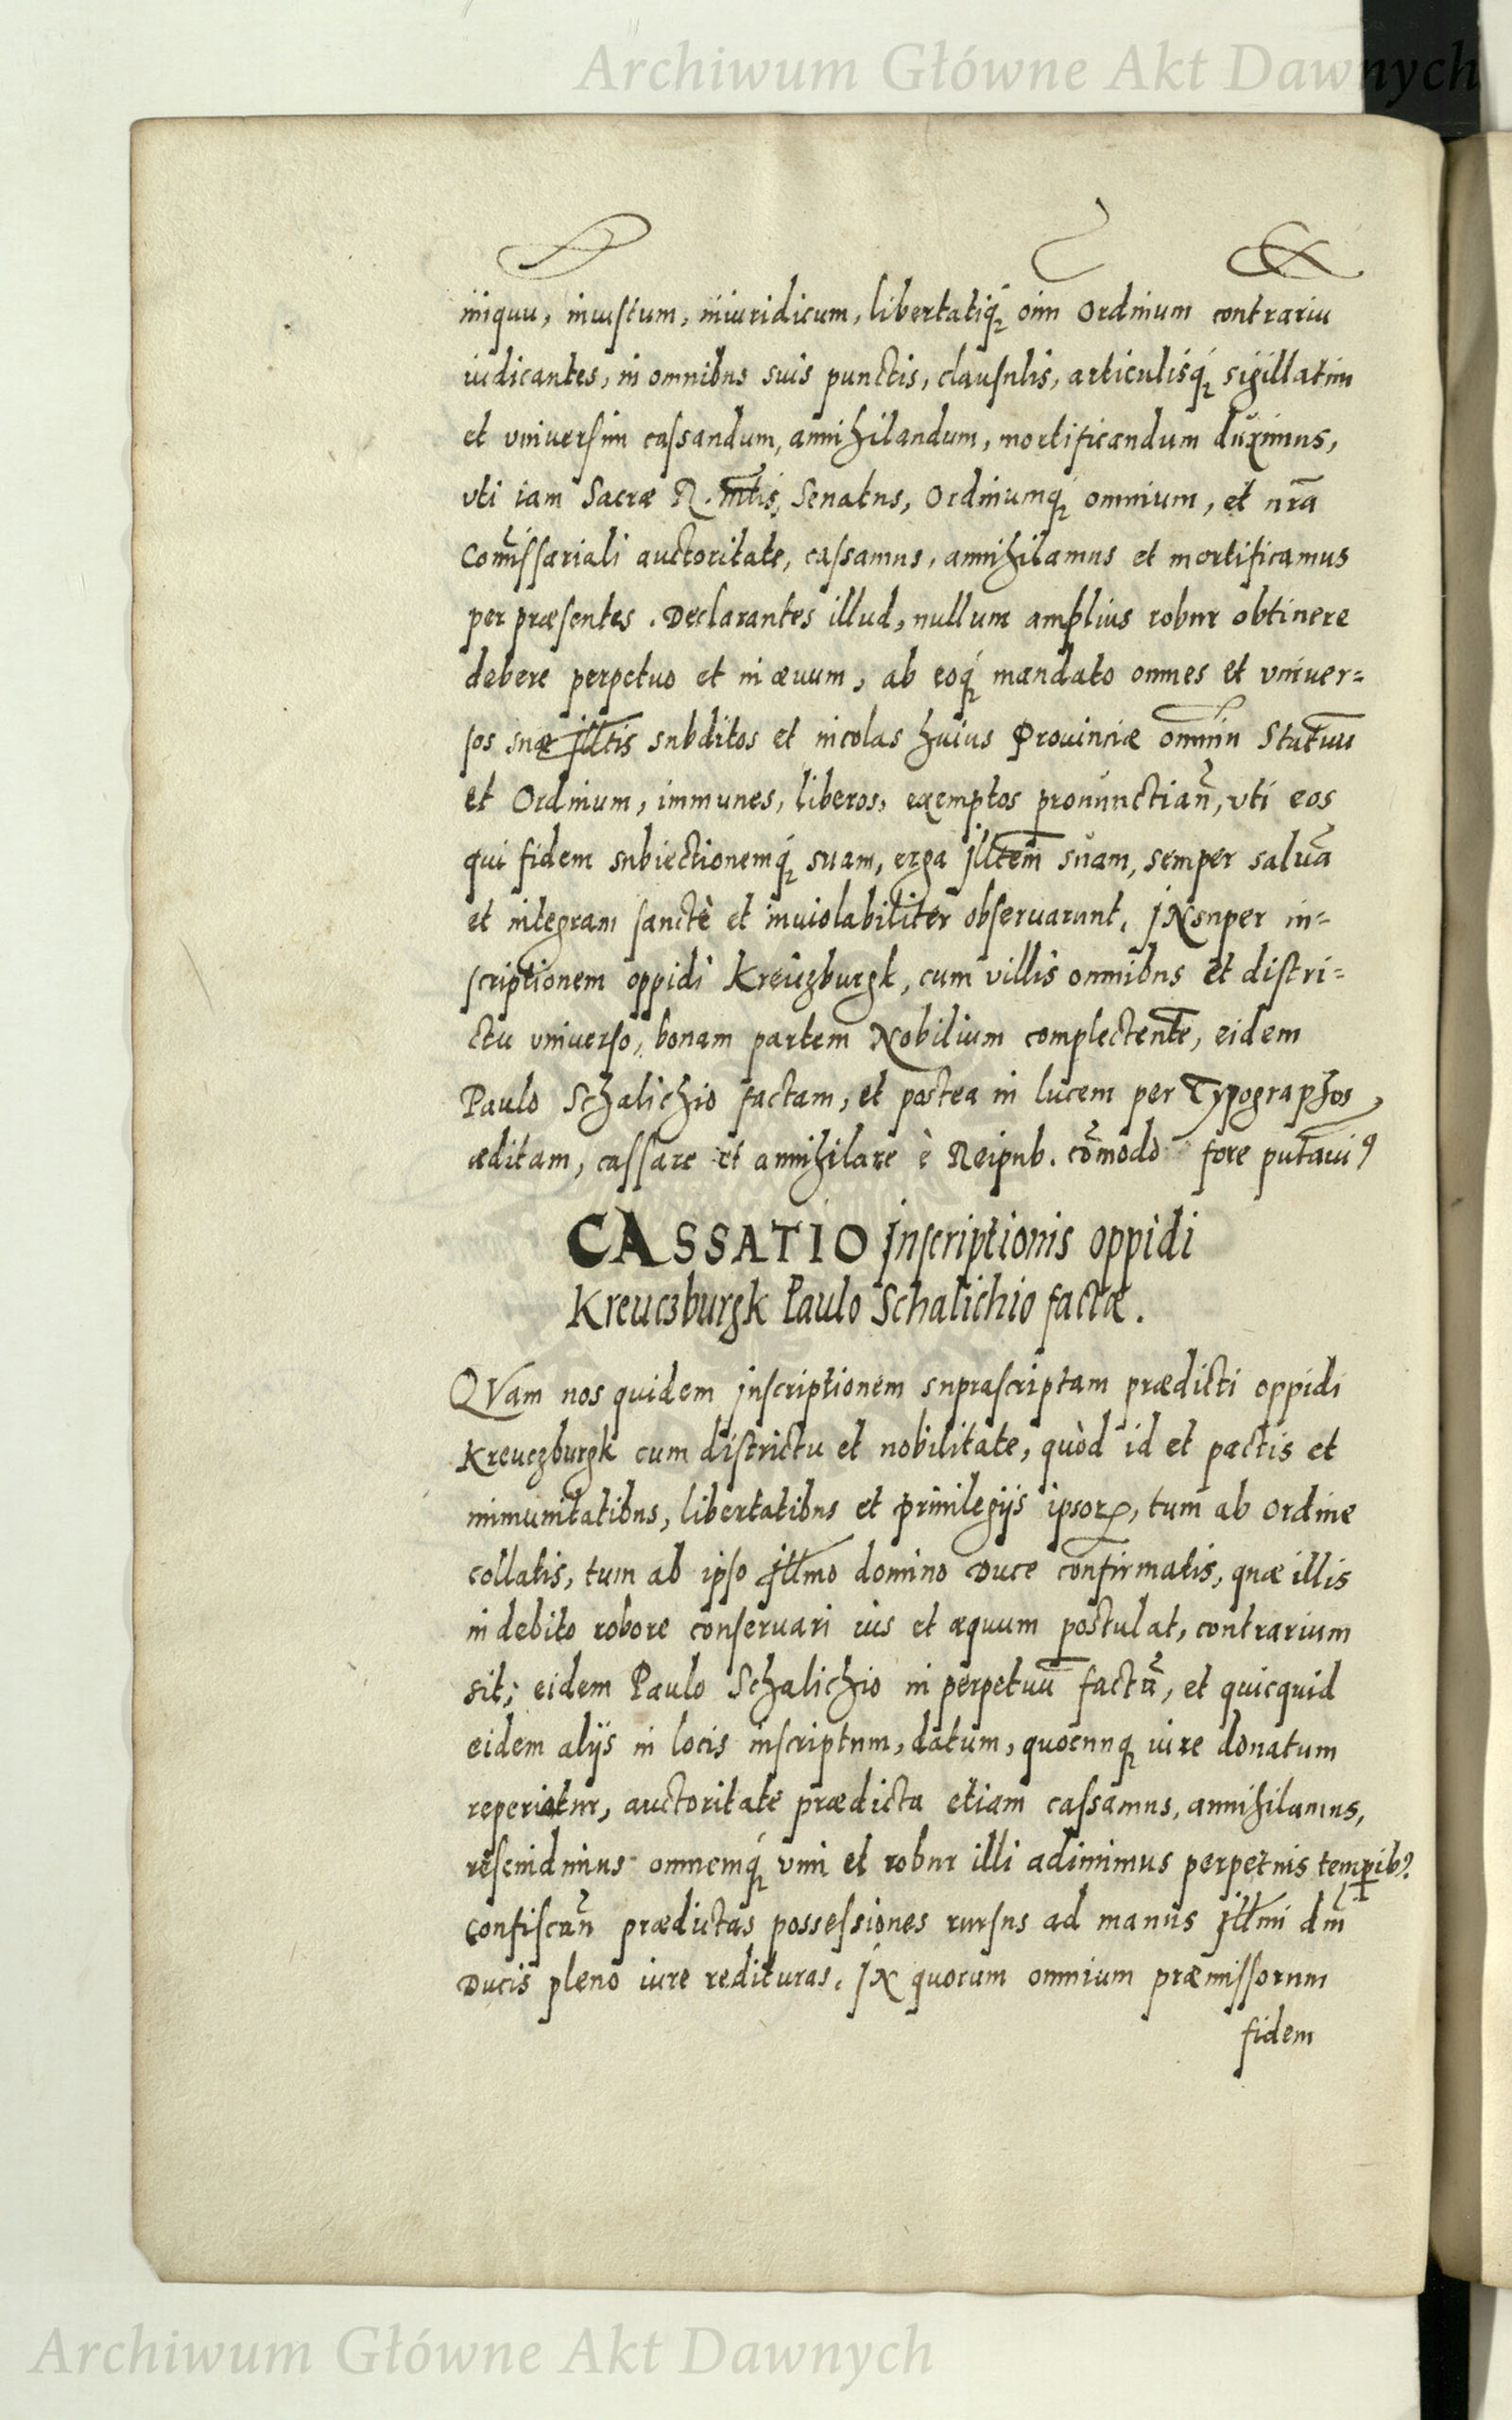 Archiwum Główne Akt Dawnych
iniquu, iniustum, iniuridicum, libertatiq́ʒ oīm Ordinum contrariu
iudicantes, in omnibus suis punctis, clausulis, articulisq́ʒ sigillatim
et vniuersim cassandum, annihilandum, mortificandum dúximus,
vti iam Sacræ R. m̄tis, Senatus, Ordinumq́ʒ omnium, et nr̄a
Com̄issariali auctoritate, cassamus, annihilamus et mortificamus
per præsentes. Declarantes illud, nullum amplius robur obtinere
debere perpetuo et in æuum, ab eoq́ʒ mandato omnes et vniuer=
sos suæ Jll̄tis subditos et incolas huius Prouinciæ omniū Statuū
et Ordinum, immunes, liberos, exemptos pronunctian̄, vti eos
qui fidem subiectionemq́ʒ suam, erga Jllt̄em suam, semper saluā
et integram sanctè et inuiolabiliter obseruarunt. JNsuper in=
scriptionem oppidi Kreúczburgk, cum villis omnibus et distri=
ctu vniuerso, bonam partem Nobilium complectentē, eidem
Paulo Schalichio factam, et postea in lucem per Typographos
æditam, cassare et annihilare è Reipub. cōmodo fore putauiꝰ
CASSATIO Jnscriptionis oppidi
Kreuczburgk Paulo Schalichio factæ.
QVam nos quidem jnscriptionem suprascriptam prædicti oppidi
Kreuczburgk cum districtu et nobilitate, quòd id et pactis et
immunitatibus, libertatibus et priuilegijs ipsorꝝ, tum ab Ordine
collatis, tum ab ipso Jll̄mo domino Duce confirmatis, quæ illis
in debito robore conseruari ius et æquum postulat, contrarium
sit; eidem Paulo Schalichio in perpetuū factā, et quicquid
eidem alijs in locis inscriptum, datum, quocunqʒ iure donatum
reperiatur, auctoritate prædicta etiam cassamus, annihilamus,
rescindimus omnemq́ʒ vim et robur illi adimimus perpetuis temꝑibꝰ.
Confiscan̄ prædictas possessiones rursus ad manus Jll̄mi dn̄i
Ducis pleno iure redituras. JN quorum omnium præmissorum
fidem
Archiwum Główne Akt Dawnych